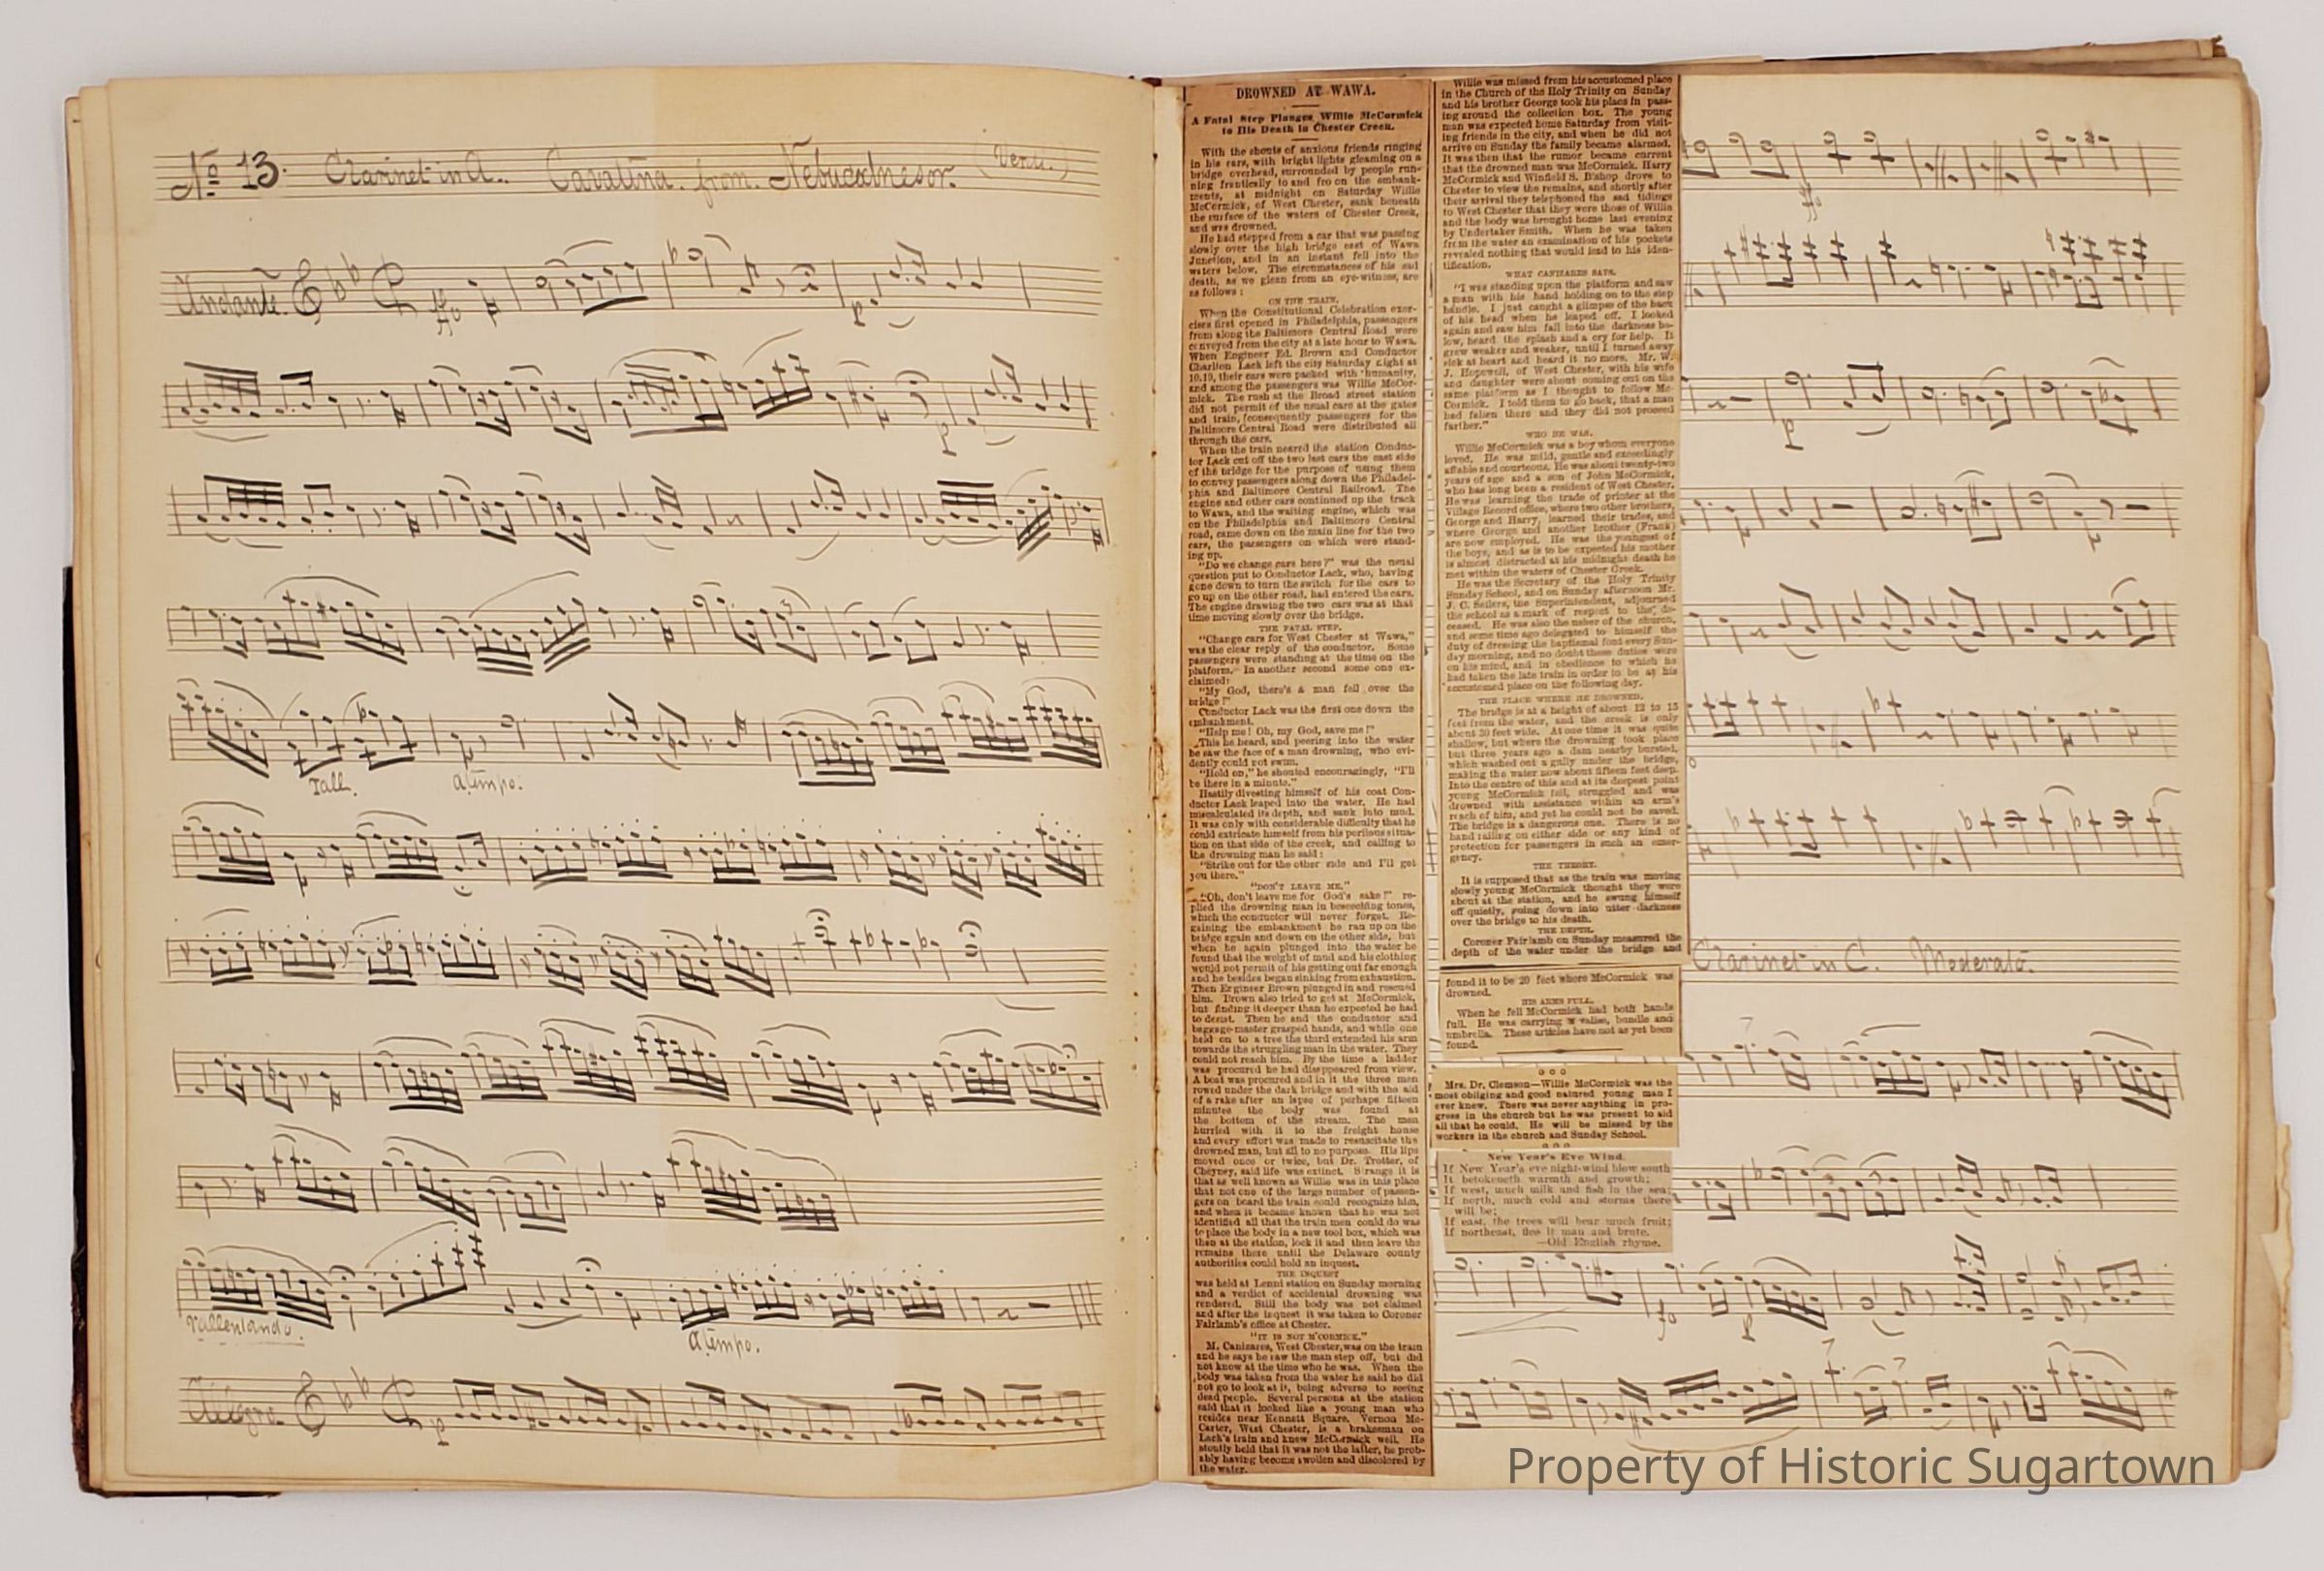 No 13. Clarinet in A. Cavatina. from. Nebucadnesor. (Verdi.)
Andante.
rall. a tempo.
rallentando.
a tempo.
Allegro.
DROWNED AT WAWA.
A Fatal Step Plunges Willie McCormick
to His Death in Chester Creek.
With the shouts of anxious friends ringing
in his ears, with bright lights gleaming on a
bridge overhead, surrounded by people run-
ning frantically to and fro on the embank-
ments, at midnight on Saturday Willie
McCormick, of West Chester, sank beneath
the surface of the waters of Chester Creek,
and was drowned.
He had stepped from a car that was passing
slowly over the high bridge east of Wawa
Junction, and in an instant fell into the
waters below. The circumstances of his sad
death, as we glean from an eye-witness, are
as follows:
ON THE TRAIN.
When the Constitutional Celebration exer-
cises first opened in Philadelphia, passengers
from along the Baltimore Central Road were
conveyed from the city at a late hour to Wawa.
When Engineer Ed. Brown and Conductor
Charlton Lack left the city Saturday night at
10.19, their cars were packed with humanity,
and among the passengers was Willie McCor-
mick. The rush at the Broad street station
did not permit of the usual care at the gates
and train, consequently passengers for the
Baltimore Central Road were distributed all
through the cars.
When the train neared the station Conduc-
tor Lack cut off the two last cars the east side
of the bridge for the purpose of using them
to convey passengers along down the Philadel-
phia and Baltimore Central Railroad. The
engine and other cars continued up the track
to Wawa, and the waiting engine, which was
on the Philadelphia and Baltimore Central
road, came down on the main line for the two
cars, the passengers on which were stand-
ing up.
"Do we change cars here?" was the usual
question put to Conductor Lack, who, having
gone down to turn the switch for the cars to
go up on the other road, had entered the cars.
The engine drawing the two cars was at that
time moving slowly over the bridge.
THE FATAL STEP.
"Change cars for West Chester at Wawa,"
was the clear reply of the conductor. Some
passengers were standing at the time on the
platform. In another second some one ex-
claimed:
"My God, there's a man fell over the
bridge!"
Conductor Lack was the first one down the
embankment.
"Help me! Oh, my God, save me!"
This he heard, and peering into the water
he saw the face of a man drowning, who evi-
dently could not swim.
"Hold on," he shouted encouragingly, "I'll
be there in a minute."
Hastily divesting himself of his coat Con-
ductor Lack leaped into the water. He had
miscalculated its depth, and sank into mud.
It was only with considerable difficulty that he
could extricate himself from his perilous situa-
tion on that side of the creek, and calling to
the drowning man he said:
"Strike out for the other side and I'll get
you there."
"DON'T LEAVE ME."
"Oh, don't leave me for God's sake!" re-
plied the drowning man in beseeching tones,
which the conductor will never forget. Re-
gaining the embankment he ran up on the
bridge again and down on the other side, but
when he again plunged into the water he
found that the weight of mud and his clothing
would not permit of his getting out far enough
and he besides began sinking from exhaustion.
Then Engineer Brown plunged in and rescued
him. Brown also tried to get at McCormick,
but finding it deeper than he expected he had
to desist. Then he and the conductor and
baggage-master grasped hands, and while one
held on to a tree the third extended his arm
towards the struggling man in the water. They
could not reach him. By the time a ladder
was procured he had disappeared from view.
A boat was procured and in it the three men
rowed under the dark bridge and with the aid
of a rake after an lapse of perhaps fifteen
minutes the body was found at
the bottom of the stream. The men
hurried with it to the freight house
and every effort was made to resuscitate the
drowned man, but all to no purpose. His lips
moved once or twice, but Dr. Trotter, of
Cheyney, said life was extinct. Strange it is
that as well known as Willie was in this place
that not one of the large number of passen-
gers on board the train could recognize him,
and when it became known that he was not
identified all that the train men could do was
to place the body in a new tool box, which was
then at the station, lock it and then leave the
remains there until the Delaware county
authorities could hold an inquest.
THE INQUEST
was held at Lenni station on Sunday morning
and a verdict of accidental drowning was
rendered. Still the body was not claimed
and after the inquest it was taken to Coroner
Fairlamb's office at Chester.
"IT IS NOT M'CORMICK."
M. Canizares, West Chester, was on the train
and he says he saw the man step off, but did
not know at the time who he was. When the
body was taken from the water he said he did
not go to look at it, being adverse to seeing
dead people. Several persons at the station
said that it looked like a young man who
resides near Kennett Square. Vernon Mc-
Carter, West Chester, is a brakesman on
Lack's train and knew McCormick well. He
stoutly held that it was not the latter, he prob-
ably having become swollen and discolored by
the water.
Willie was missed from his accustomed place
in the Church of the Holy Trinity on Sunday
and his brother George took his place in pass-
ing around the collection box. The young
man was expected home Saturday from visit-
ing friends in the city, and when he did not
arrive on Sunday the family became alarmed.
It was then that the rumor became current
that the drowned man was McCormick. Harry
McCormick and Winfield S. Bishop drove to
Chester to view the remains, and shortly after
their arrival they telephoned the sad tidings
to West Chester that they were those of Willie
and the body was brought home last evening
by Undertaker Smith. When he was taken
from the water an examination of his pockets
revealed nothing that would lead to his iden-
tification.
WHAT CANIZARES SAYS.
"I was standing upon the platform and saw
a man with his hand holding on to the step
handle. I just caught a glimpse of the back
of his head when he leaped off. I looked
again and saw him fall into the darkness be-
low, heard the splash and a cry for help. It
grew weaker and weaker, until I turned away
sick at heart and heard it no more. Mr. W.
J. Hopewell, of West Chester, with his wife
and daughter were about coming out on the
same platform as I thought to follow Mc-
Cormick. I told them to go back, that a man
had fallen there and they did not proceed
farther."
WHO HE WAS.
Willie McCormick was a boy whom everyone
loved. He was mild, gentle and exceedingly
affable and courteous. He was about twenty-two
years of age and a son of John McCormick,
who has long been a resident of West Chester.
He was learning the trade of printer at the
Village Record office, where two other brothers,
George and Harry, learned their trades, and
where George and another brother (Frank)
are now employed. He was the youngest of
the boys, and as is to be expected his mother
is almost distracted at his midnight death he
met within the waters of Chester Creek.
He was the Secretary of the Holy Trinity
Sunday School, and on Sunday afternoon Mr.
J. C. Sellers, the Superintendent, adjourned
the school as a mark of respect to the de-
ceased. He was also the usher of the church,
and some time ago delegated to himself the
duty of dressing the baptismal font every Sun-
day morning, and no doubt these duties were
on his mind, and in obedience to which he
had taken the late train in order to be at his
accustomed place on the following day.
THE PLACE WHERE HE DROWNED.
The bridge is at a height of about 12 to 15
feet from the water, and the creek is only
about 30 feet wide. At one time it was quite
shallow, but where the drowning took place
but three years ago a dam nearby bursted,
which washed out a gully under the bridge,
making the water now about fifteen feet deep.
Into the centre of this and at its deepest point
young McCormick fell, struggled and was
drowned with assistance within an arm's
reach of him, and yet he could not be saved.
The bridge is a dangerous one. There is no
hand railing on either side or any kind of
protection for passengers in such an emer-
gency.
THE THEORY.
It is supposed that as the train was moving
slowly young McCormick thought they were
about at the station, and he swung himself
off quietly, going down into utter darkness
over the bridge to his death.
THE DEPTH.
Coroner Fairlamb on Sunday measured the
depth of the water under the bridge and
found it to be 20 feet where McCormick was
drowned.
HIS ARMS FULL.
When he fell McCormick had both hands
full. He was carrying a valise, bundle and
umbrella. These articles have not as yet been
found.
Mrs. Dr. Clemson—Willie McCormick was the
most obliging and good natured young man I
ever knew. There was never anything in pro-
gress in the church but he was present to aid
all that he could. He will be missed by the
workers in the church and Sunday School.
New Year's Eve Wind.
If New Year's eve night-wind blow south
It betokeneth warmth and growth;
If west, much milk and fish in the sea;
If north, much cold and storms there
will be;
If east, the trees will bear much fruit;
If northeast, flee it man and brute.
—Old English rhyme.
Clarinet in C. Moderato.
Property of Historic Sugartown